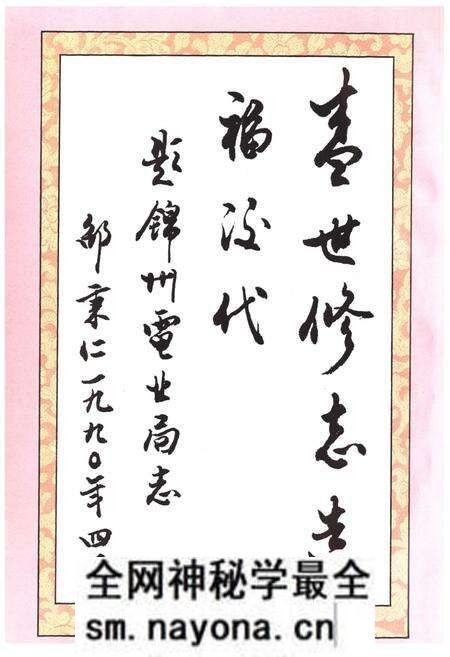 盛世修志
福後代
题錦州電业局志
邵秉仁一九九〇年四
全网神秘学最全
sm.nayona.cn